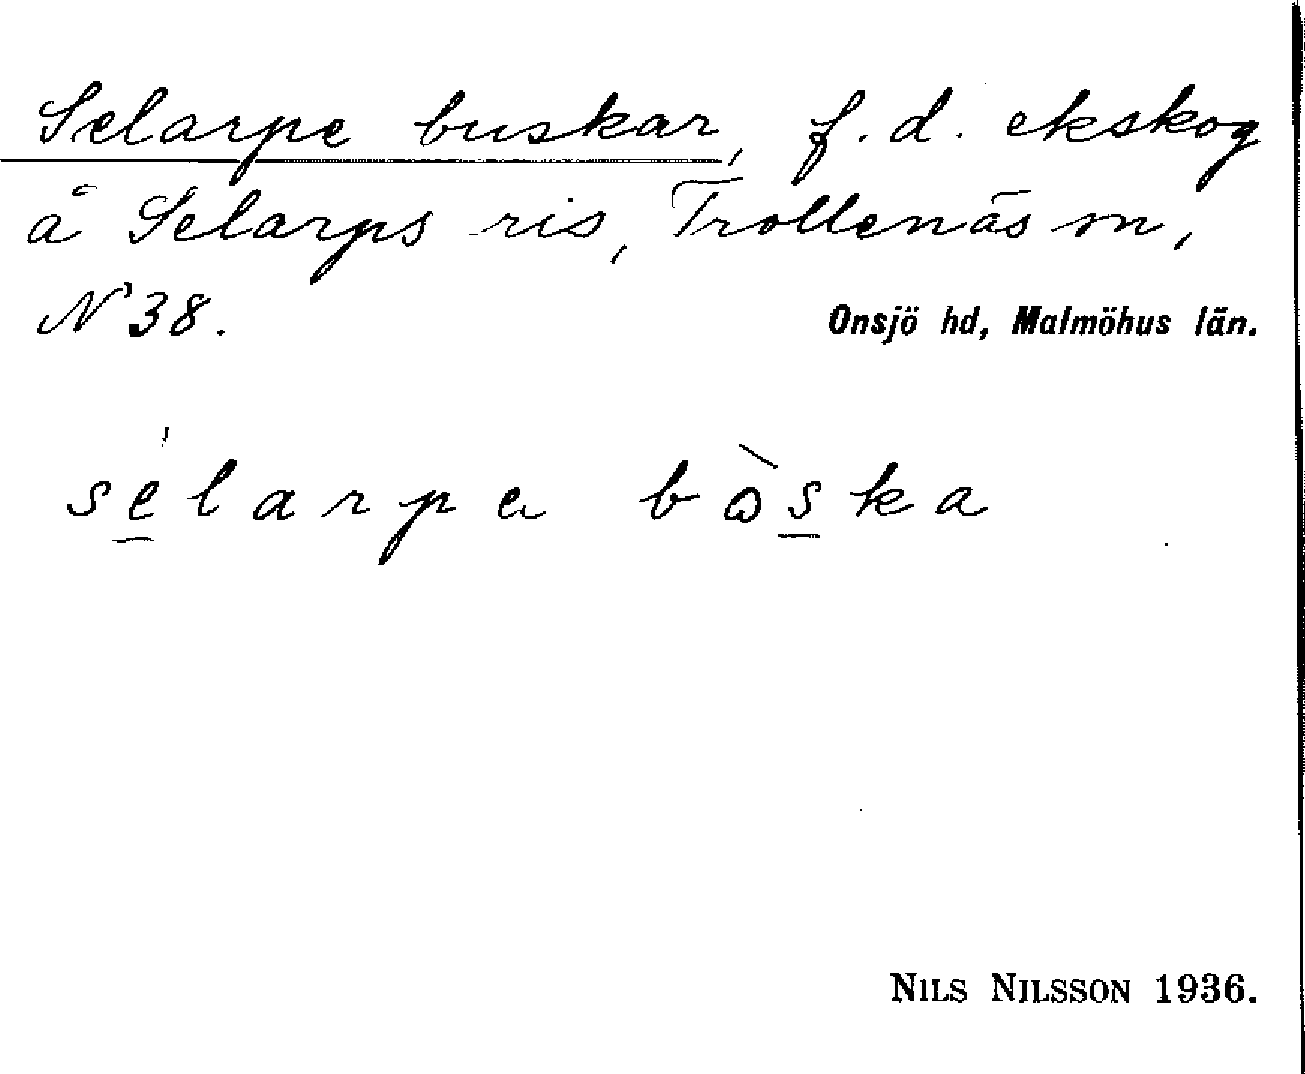 Selarpe buskar, f. d. ekskog
å Selarps ris, Trollenäs sn,
N 38.
Onsjö hd, Malmöhus län.
sélarpa bòska
NILS NILSSON 1936.